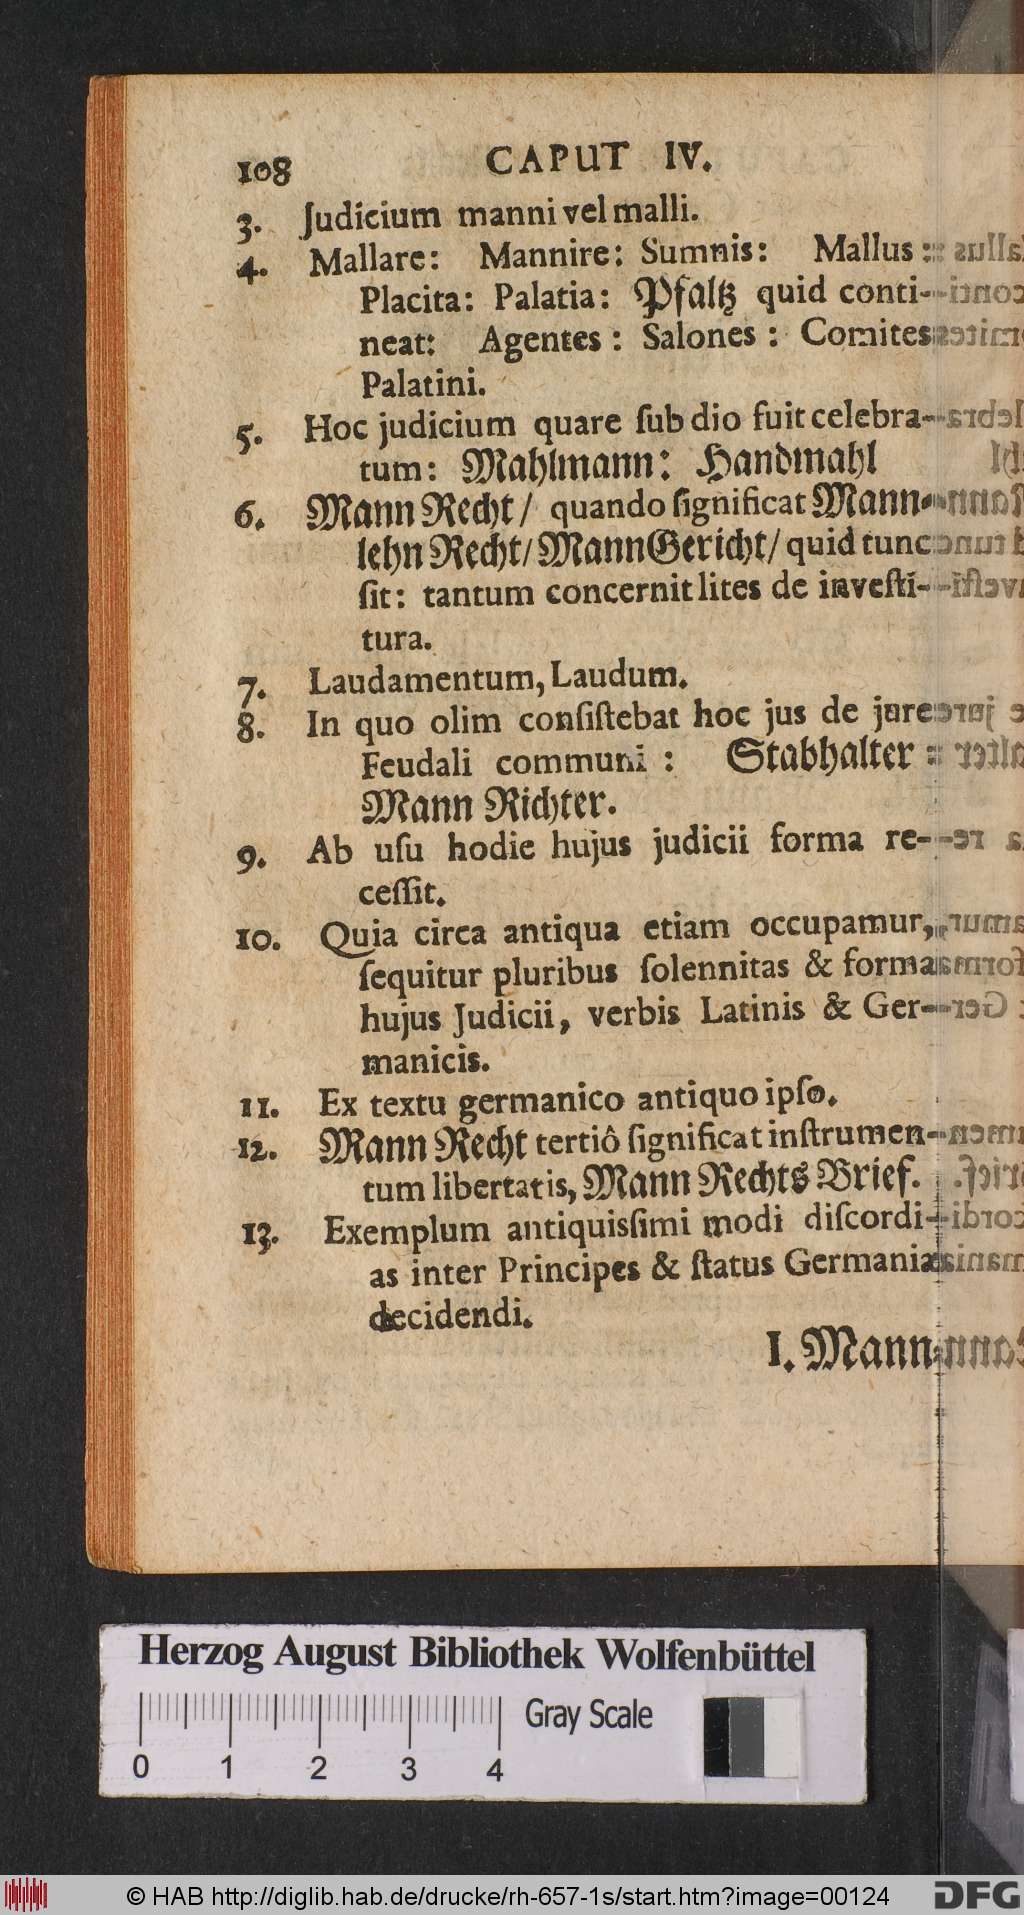 108 CAPUT IV.
3. Judicium manni vel malli.
4. Mallare: Mannire: Sumnis: Mallus:
Placita: Palatia: Pfaltz quid conti-
neat: Agentes: Salones: Comites
Palatini.
5. Hoc judicium quare ſub dio fuit celebra-
tum: Mahlmann: Handmahl
6. Mann Recht / quando ſignificat Mann-
lehn Recht/ Mann Gericht/ quid tunc
ſit: tantum concernit lites de inveſti-
tura.
7. Laudamentum, Laudum.
8. In quo olim conſiſtebat hoc jus de jure
Feudali communi: Stabhalter =
Mann Richter.
9. Ab uſu hodie hujus judicii forma re-
ceſſit.
10. Quia circa antiqua etiam occupamur,
ſequitur pluribus ſolennitas & forma
hujus Judicii, verbis Latinis & Ger-
manicis.
11. Ex textu germanico antiquo ipſo.
12. Mann Recht tertiô ſignificat inſtrumen-
tum libertatis, Mann Rechts Brief.
13. Exemplum antiquisſimi modi diſcordi-
as inter Principes & ſtatus Germaniæ
decidendi.
I. Mann
Herzog August Bibliothek Wolfenbüttel
Gray Scale
0 1 2 3 4
© HAB http://diglib.hab.de/drucke/rh-657-1s/start.htm?image=00124 DFG